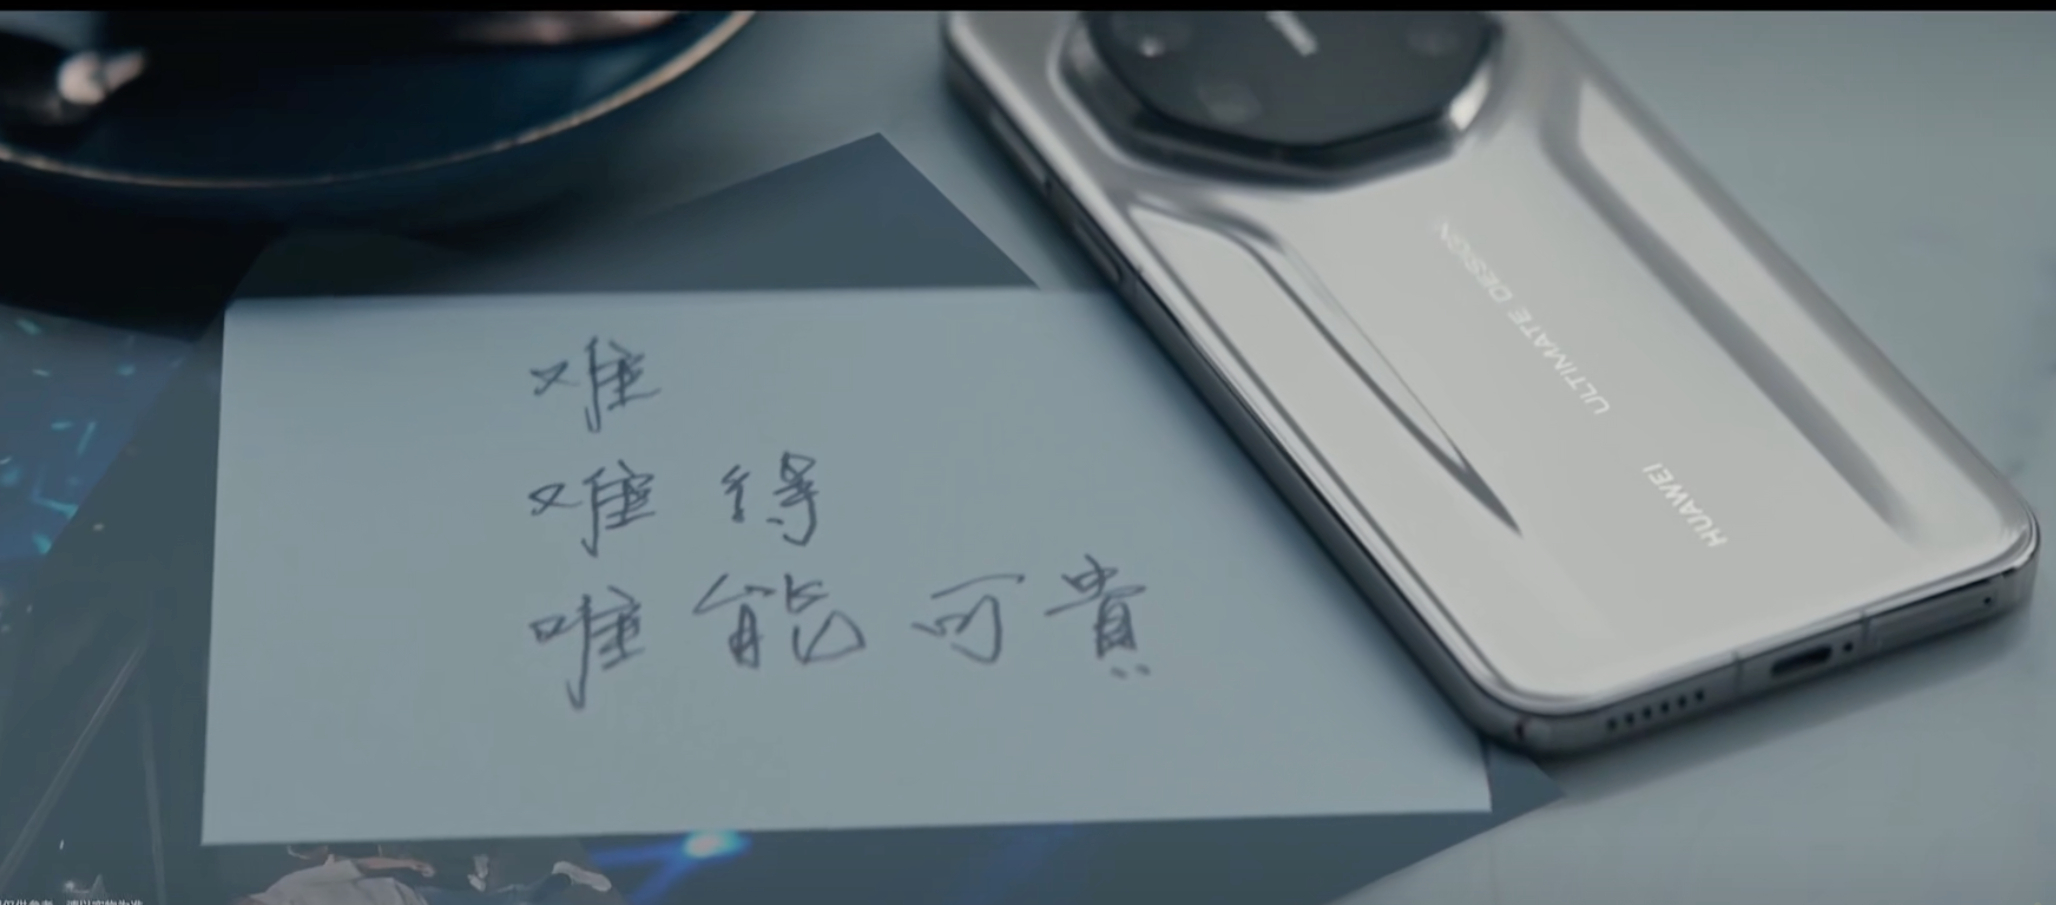 难
难得
难能可貴
ULTIMATE DESIGN
HUAWEI